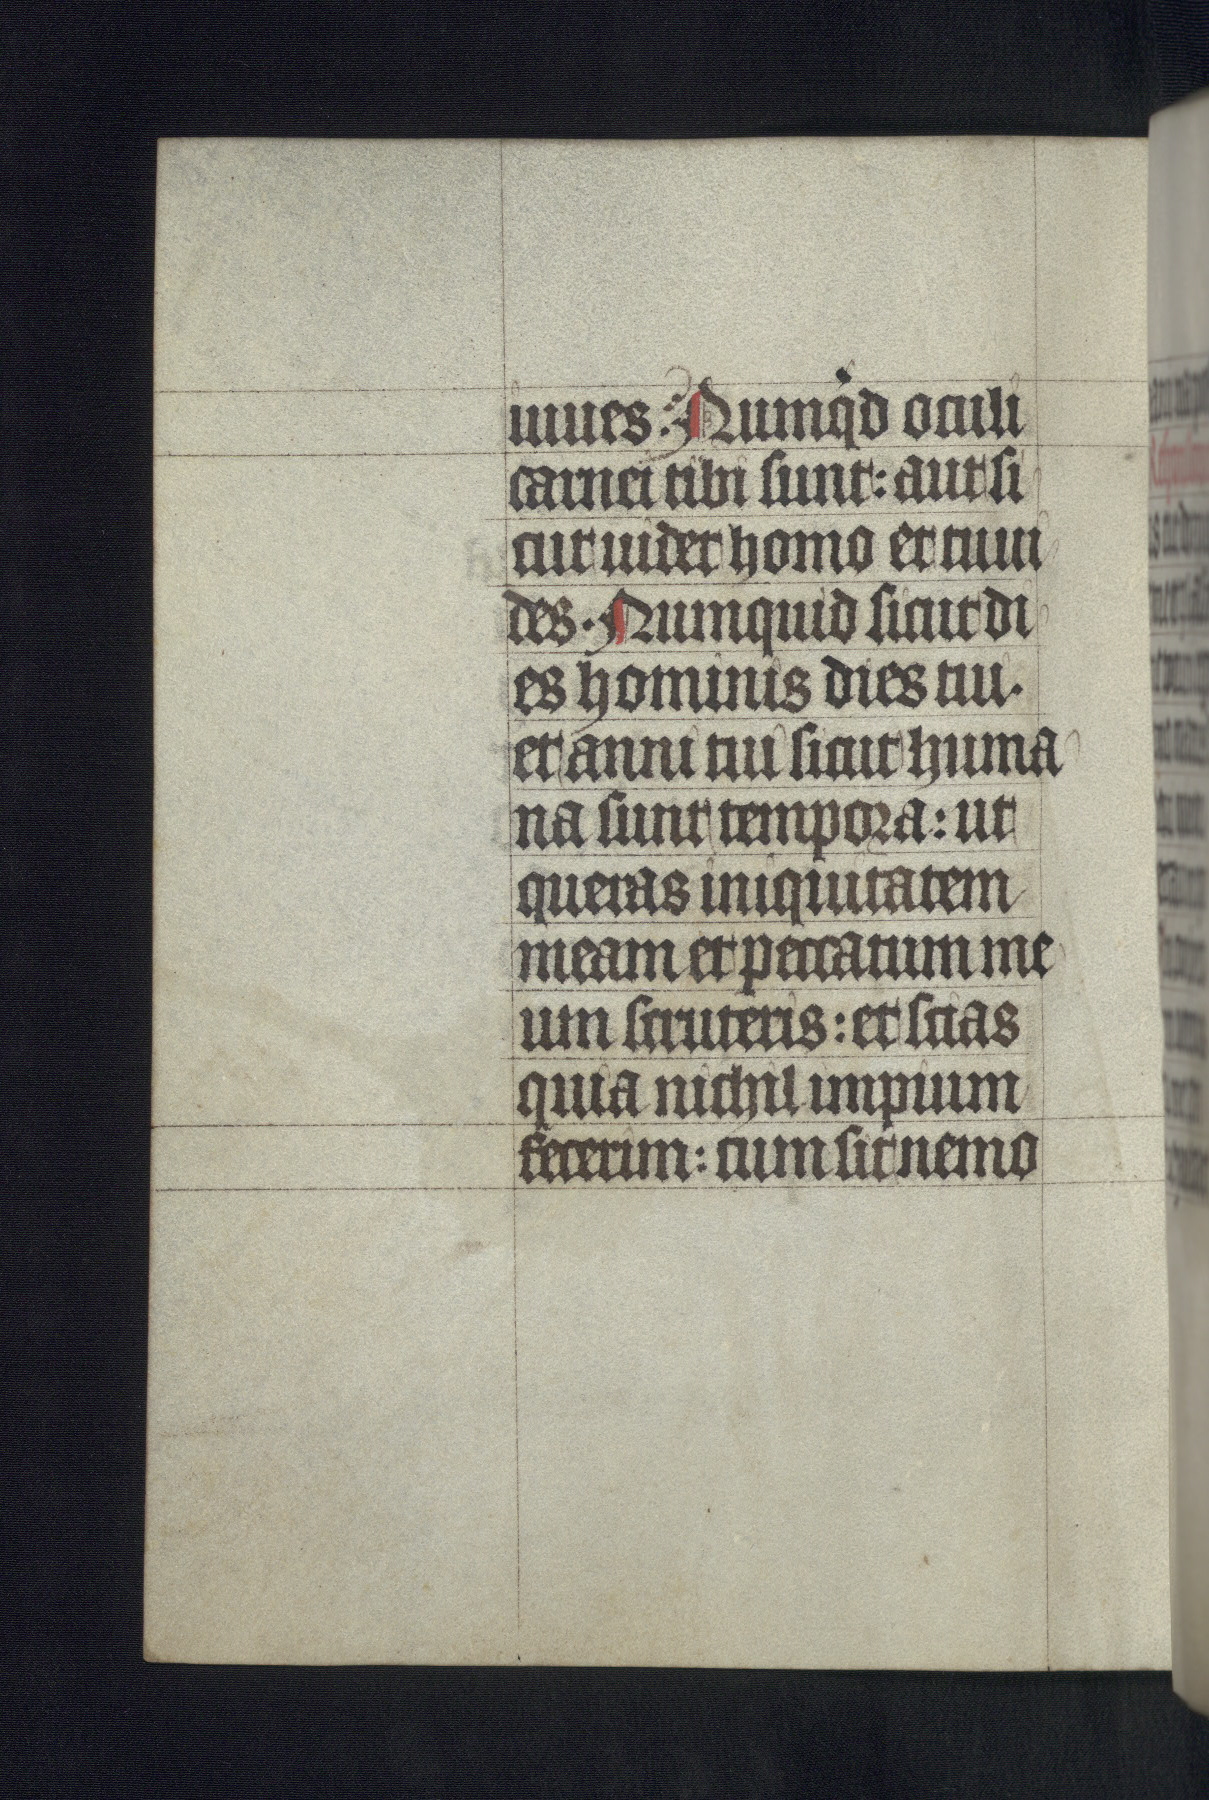 iuues. Numqͥd oculi
carnei tibi sunt: aut si
cut uidet homo et tu ui
des. Numquid sicut di
es hominis dies tui.
et anni tui sicut huma
na sunt tempora: ut
queras iniquitatem
meam et peccatum me
um scruteris: et scias
quia nichil impium
fecerim: cum sit nemo